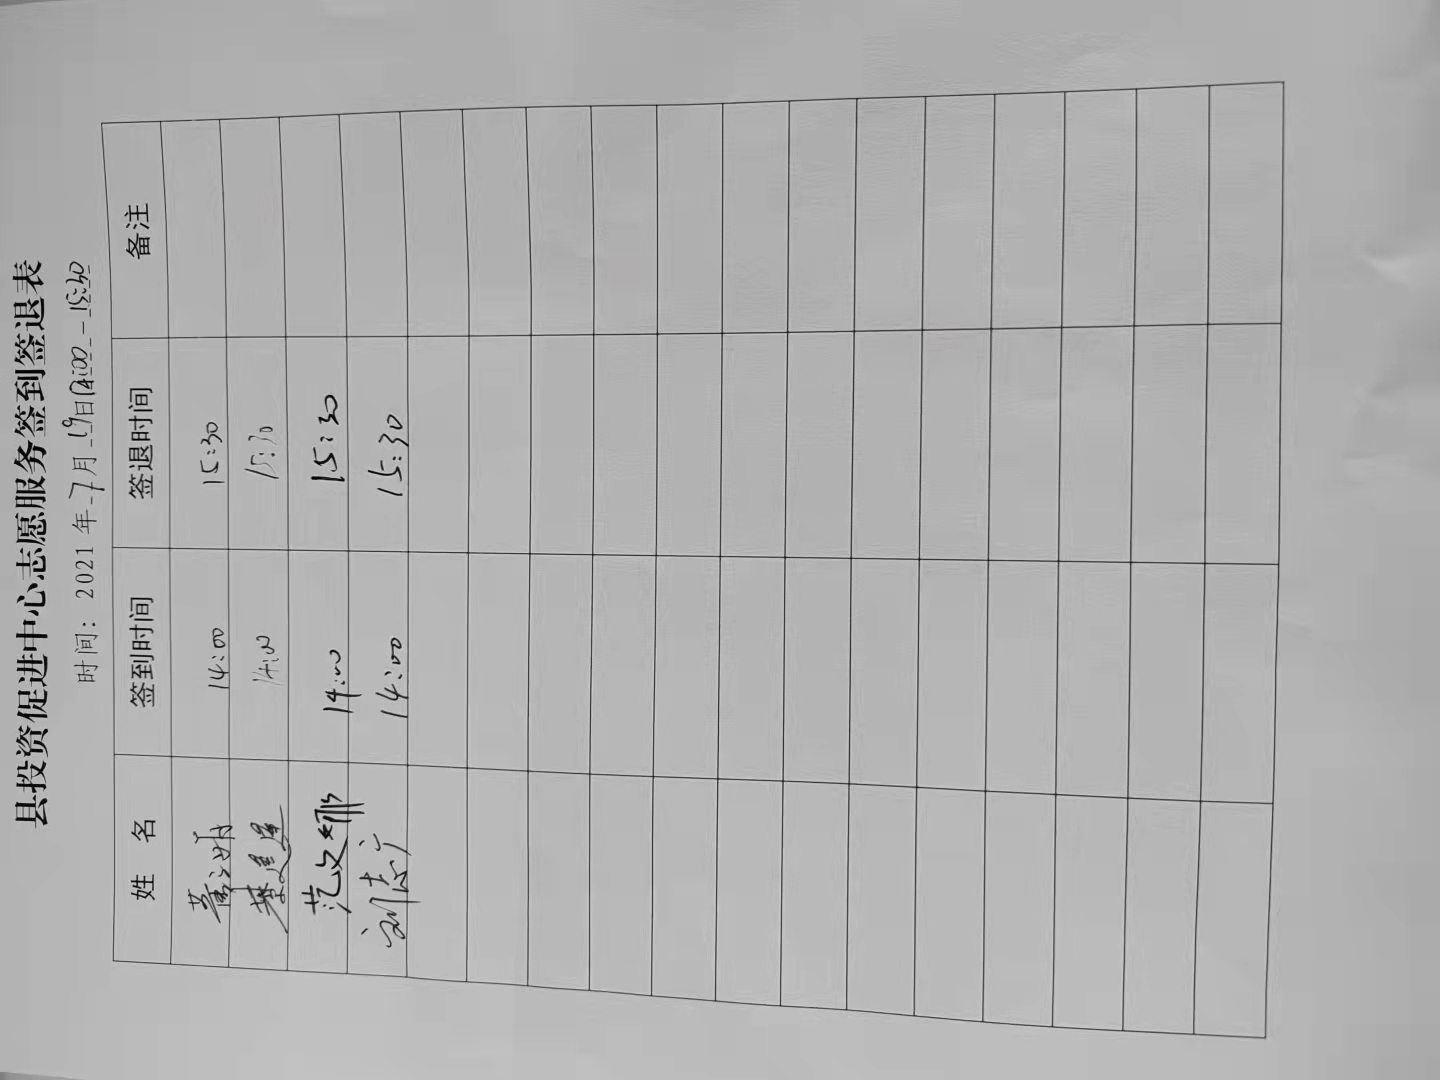 县投资促进中心志愿服务签到签退表
时间: 2021 年 7 月 19 日 14:00 - 15:30
姓 名 签到时间 签退时间 备注
14:00 15:30
14:00 15:30
范文娜 14:00 15:30
刘志广 14:00 15:30